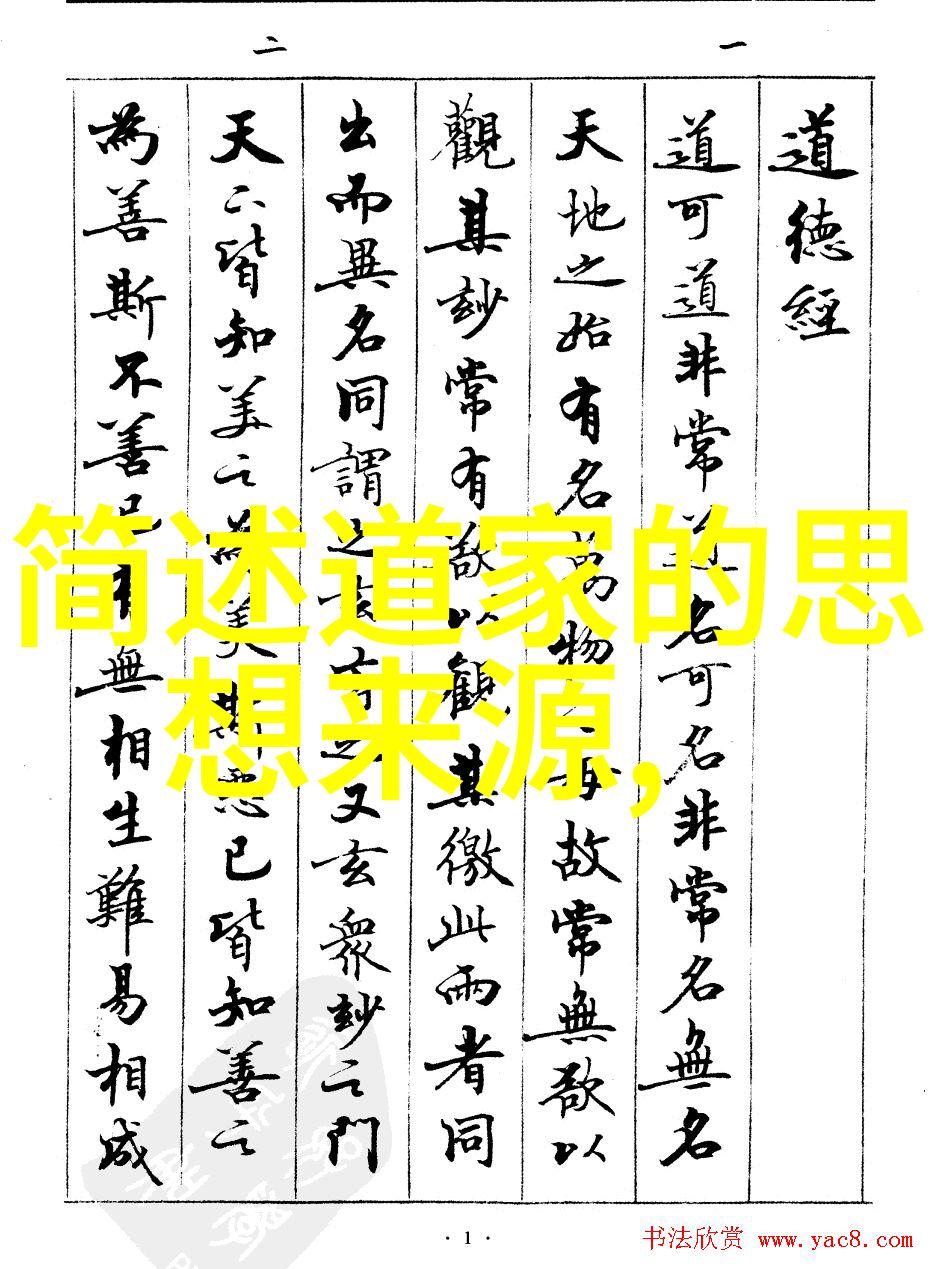 一
二
道德經
道可道非常道名可名非常名無名
天地之始有名萬物之母故常無欲以
觀其玅常有欲以觀其徼此兩者同
出而異名同謂之玄玄之又玄眾玅之門
天下皆知美之為美斯惡已皆知善之
為善斯不善已有無相生難易相成
简述道家的思
想来源,
· 1 ·
书法欣赏 www.yac8.com